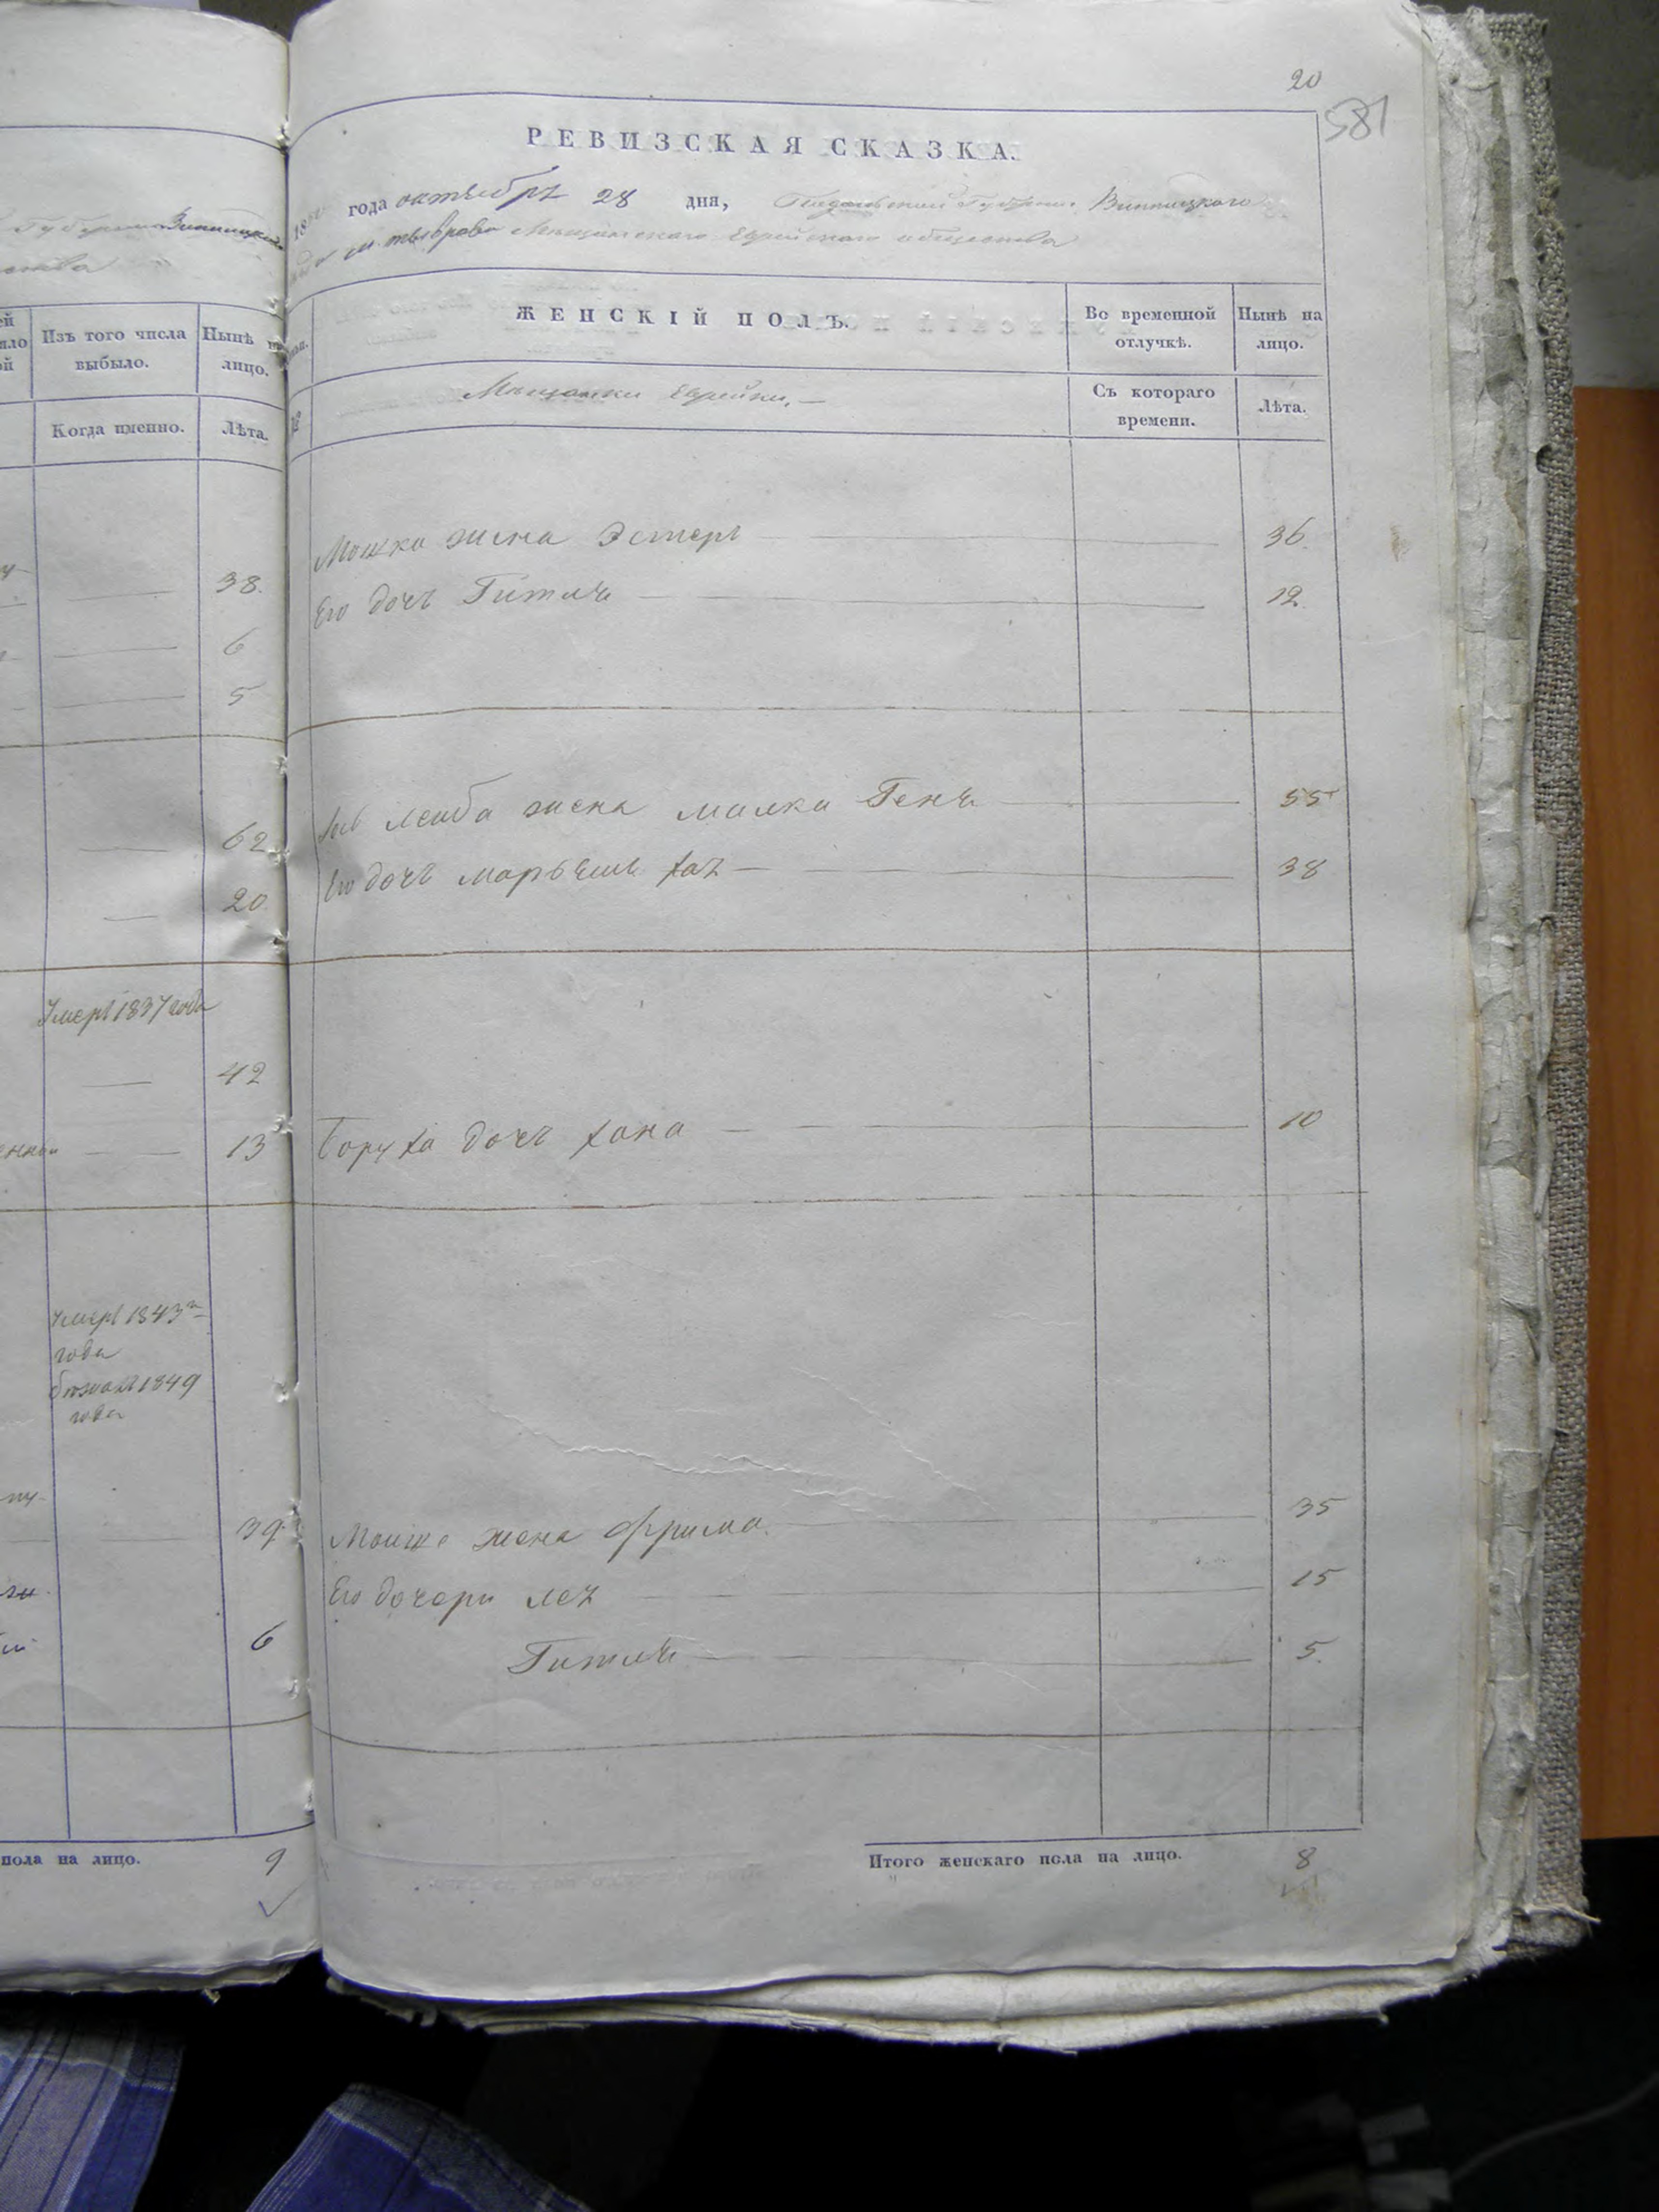 20
581
РЕВИЗСКАЯ СКАЗКА.
года октября 28 дня, Подольской Губернии Винницкого
м. тыврова Мещанского Еврейского общества
Губернии Винницкого
ЖЕНСКІЙ ПОЛЪ.
Во временной отлучкѣ.
Нынѣ на лицо.
Мещанки Еврейки.
Съ котораго времени.
Лѣта.
Изъ того числа выбыло.
Нынѣ на лицо.
Когда именно.
Лѣта.
38.
6
5
62
20
Умеръ 1837 года
42
13
Умеръ 1843
года
бежалъ 1849
года
39
6
пола на лицо. 9
Мошка жена Эстеръ 36.
Его дочь Гитля 12.
Лейба жена малка Геня 55
Его дочь марьямъ хая 38
Боруха дочь хана 10
Моишe жена Фрима. 35
Его дочери лея 15
Гитля 5.
Итого женскаго пола на лицо. 8